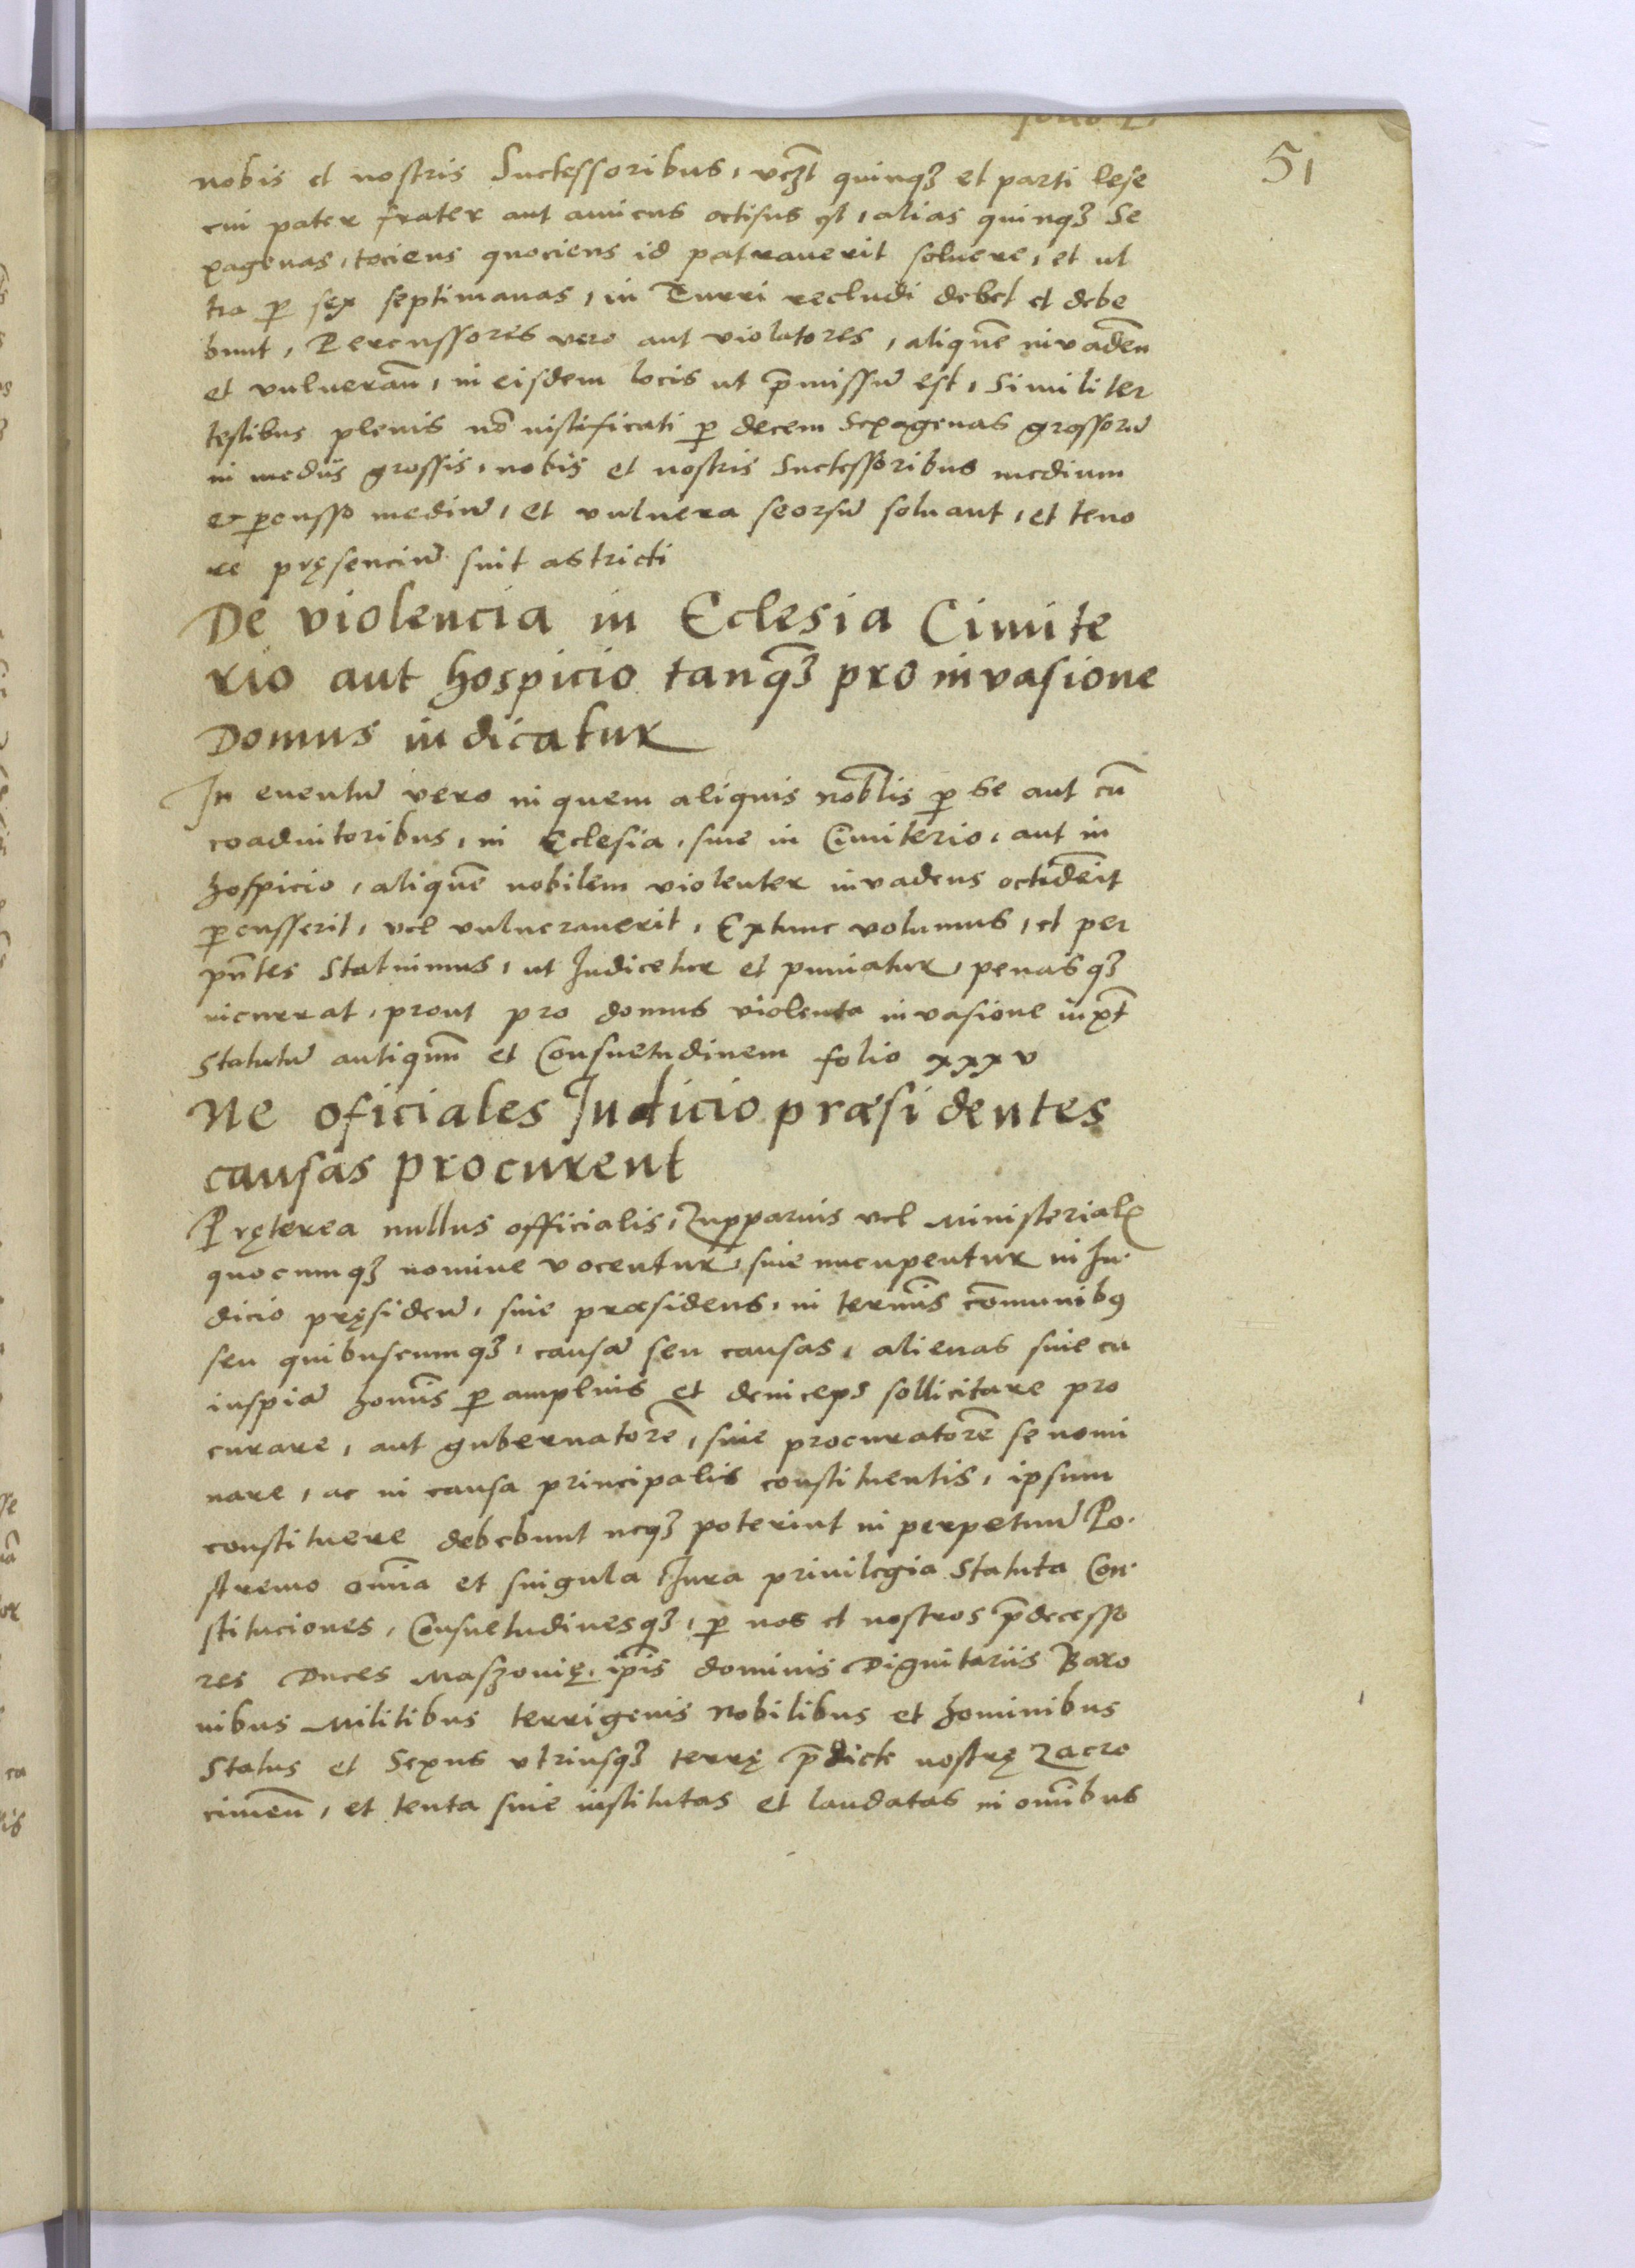 51
nobis et nostris Successoribus, vꝫt quinqꝫ et parti lese
cui pater frater aut amicus occisus est, alias quinqꝫ Se
xagenas, tociens quociens id patrauerit soluere, et ul
tra ꝑ sex septimanas, in Turri recludi debet et debe
bunt, Percussores vero aut violatores, aliquē invadeñ
et vulnerañ, in eisdem locis ut p̄missū est, Similiter
testibus plenis nō iustificati ꝑ decem Sexagenas grossorū
in mediis grossis, nobis et nostris Successoribus medium
et ꝑcusso mediū, et vulnera seorsū soluant, et teno
re pręsenciū sint astricti
De violencia in Eclesia Cimite
rio aut hospicio tanqꝫ pro invasione
Domus iudicatur
In euentū vero in quem aliquis nobl̄is ꝑ se aut cū
coadiutoribus, in Eclesia, siue in Cimiterio, aut in
hospicio, aliquē nobilem violenter invadens occidēit
ꝑcusserit, vel vulnerauerit, Extunc volumus, et per
pn̄tes Statuimus, ut Iudicetur et puniatur, penasqꝫ
incurrat, prout pro domus violenta invasione iuxt̄
Statutū antiquum et Consuetudinem folio xxxv
Ne oficiales Iudicio præsidentes
causas procurent
Pręterea nullus officialis, Zupparius vel Ministerialꝭ
quocumqꝫ nomine vocentur, siue nucupentur in Iu
dicio pręsideñ, siue præsidens, in termīs cōmunibꝰ
seu quibuscumqꝫ, causā seu causas, alienas siue cu
iuspiā homīs ꝑ amplius et deinceps sollicitare pro
curare, aut gubernatorē, siue procuratorē se nomi
nare, ac in causa principalis constituentis, ipsum
constituere debebunt neqꝫ poterint in perpetuū Po
stremo omīa et singula Iura priuilegia Statuta Con
stituciones, Consuetudinesqꝫ, ꝑ nos et nostros p̄decesso
res Duces Maszouię, ip̄is dominis Dignitariis Baro
nibus Militibus terrigenis Nobilibus et hominibus
Status et Sexus vtriusqꝫ terrę p̄dicte nostrę Zacro
cimeñ, et tenta siue institutas et laudatas in omībus